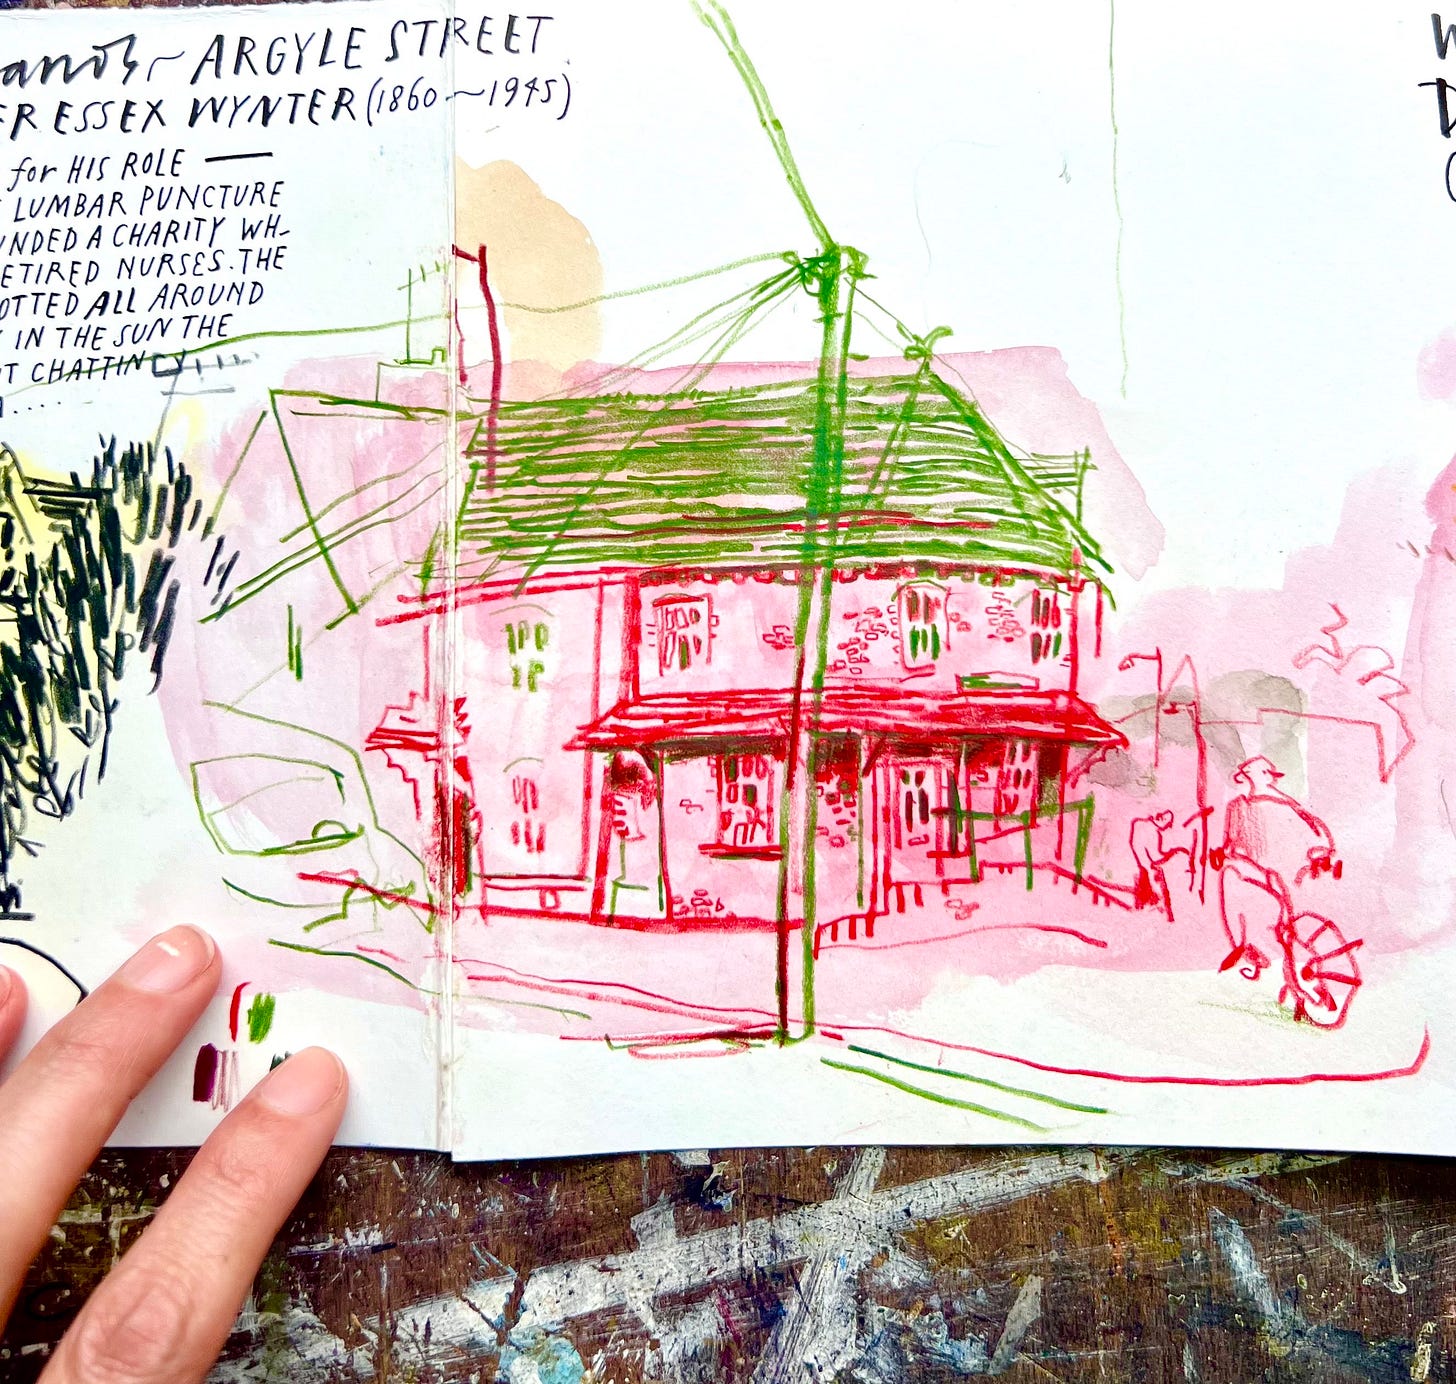 ARGYLE STREET
ESSEX WYNTER (1860~1945)
for HIS ROLE —
LUMBAR PUNCTURE
UNDED A CHARITY WH-
ETIRED NURSES. THE
OTTED ALL AROUND
IN THE SUN THE
T CHATTING
.....
W
D